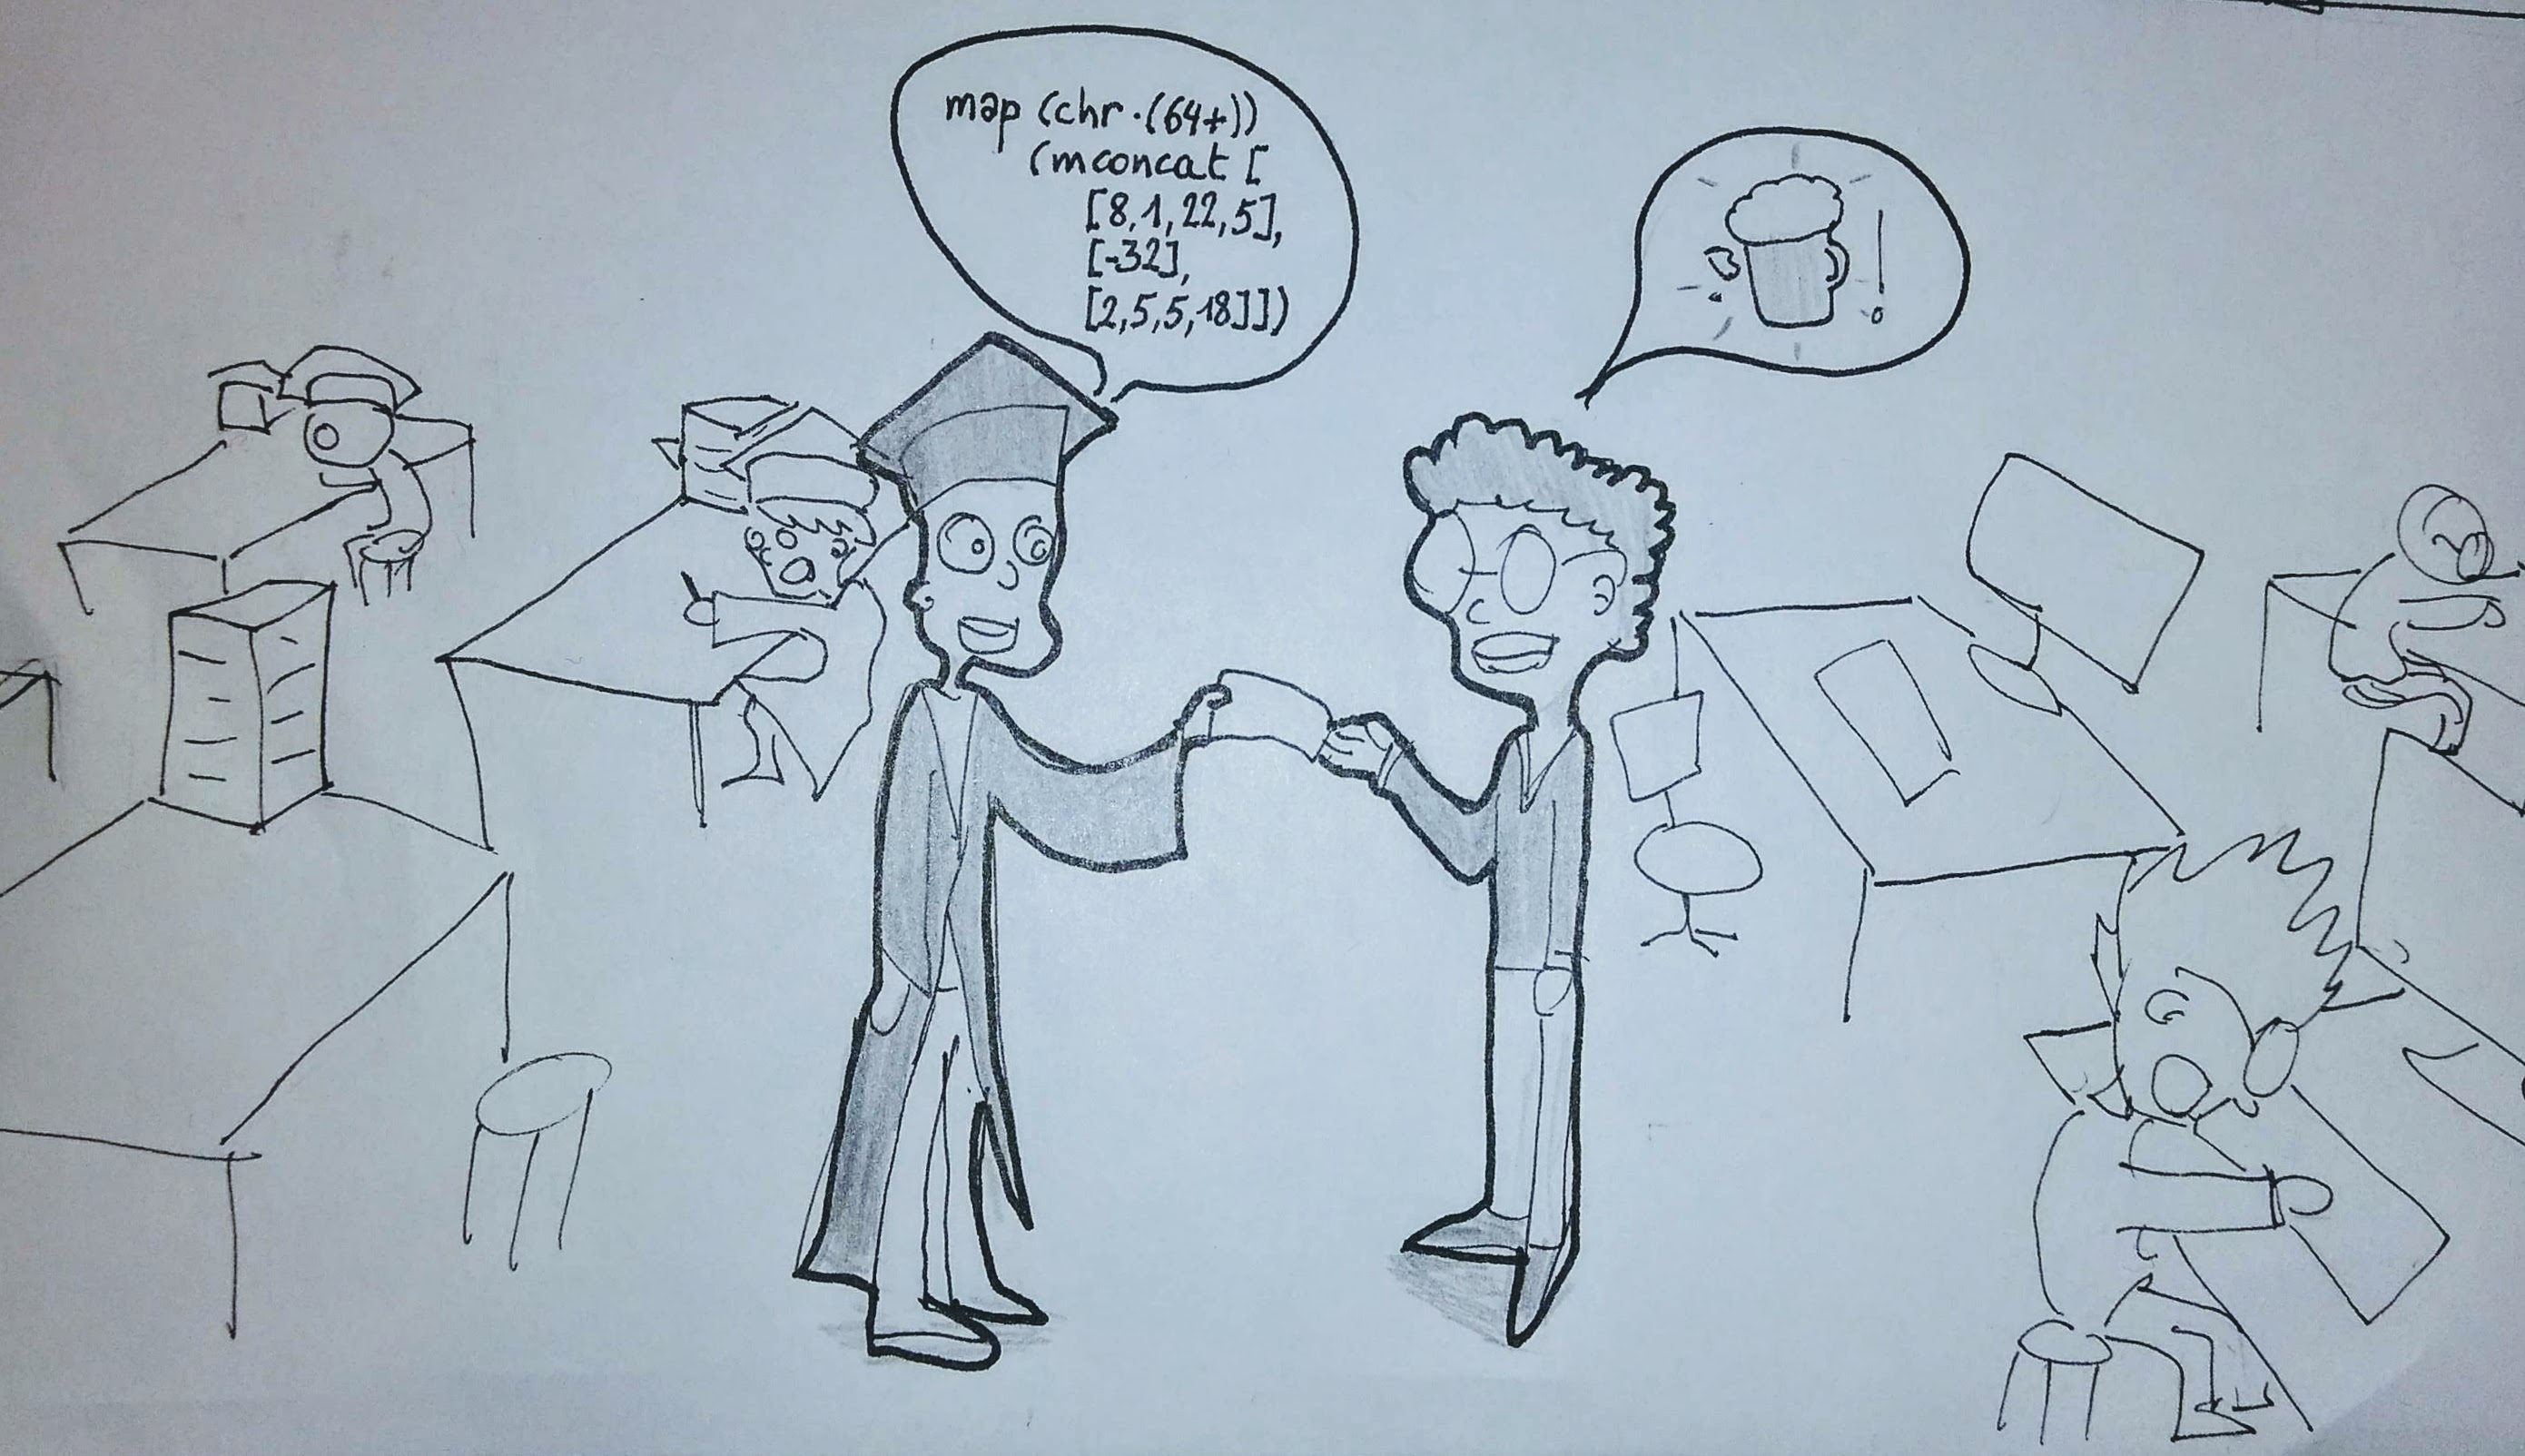 map (chr.(64+))
(mconcat [
[8,1,22,5],
[-32],
[2,5,5,18]])
!